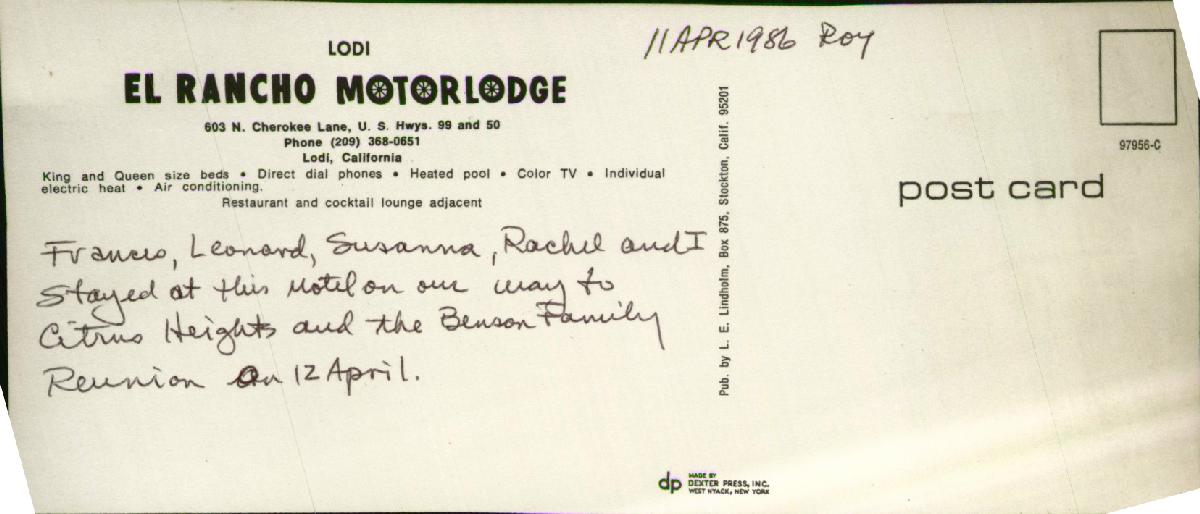 LODI
EL RANCHO MOTORLODGE
603 N. Cherokee Lane, U. S. Hwys. 99 and 50
Phone (209) 368-0651
Lodi, California
King and Queen size beds • Direct dial phones • Heated pool • Color TV • Individual
electric heat • Air conditioning.
Restaurant and cocktail lounge adjacent
Frances, Leonard, Susanna, Rachel and I
Stayed at this Motel on our way to
Citrus Heights and the Benson Family
Reunion On 12 April.
11 APR 1986 Roy
Pub. by L. E. Lindholm, Box 875, Stockton, Calif. 95201
97956-C
post card
dp MADE BY
DEXTER PRESS, INC.
WEST NYACK, NEW YORK